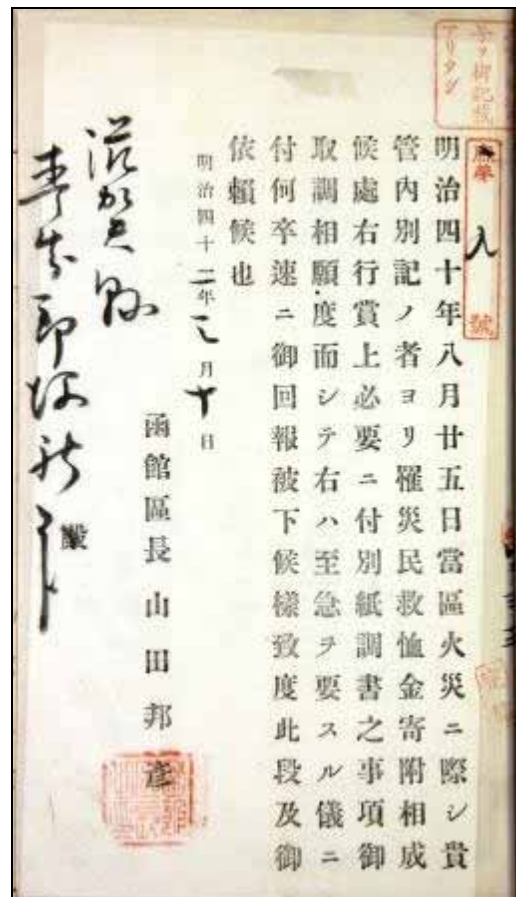 明治四十年八月廿五日當區火災ニ際シ貴
管内別記ノ者ヨリ罹災民救恤金寄附相成
候處右行賞上必要ニ付別紙調書之事項御
取調相願度而シテ右ハ至急ヲ要スル儀ニ
付何卒速ニ御回報被下候樣致度此段及御
依賴候也
明治四十二年三月十日
函館區長山田邦彦
滋賀縣
殿
號
御記載
アリタシ